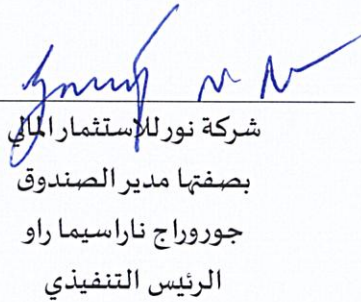 شركة نور للاستثمار المالي
بصفتها مدير الصندوق
جوروراج ناراسيما راو
الرئيس التنفيذي